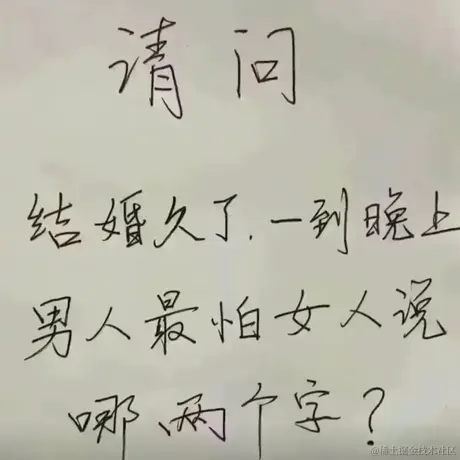 请问
结婚久了.一到晚上
男人最怕女人说
哪两个字?
@稀土掘金技术社区